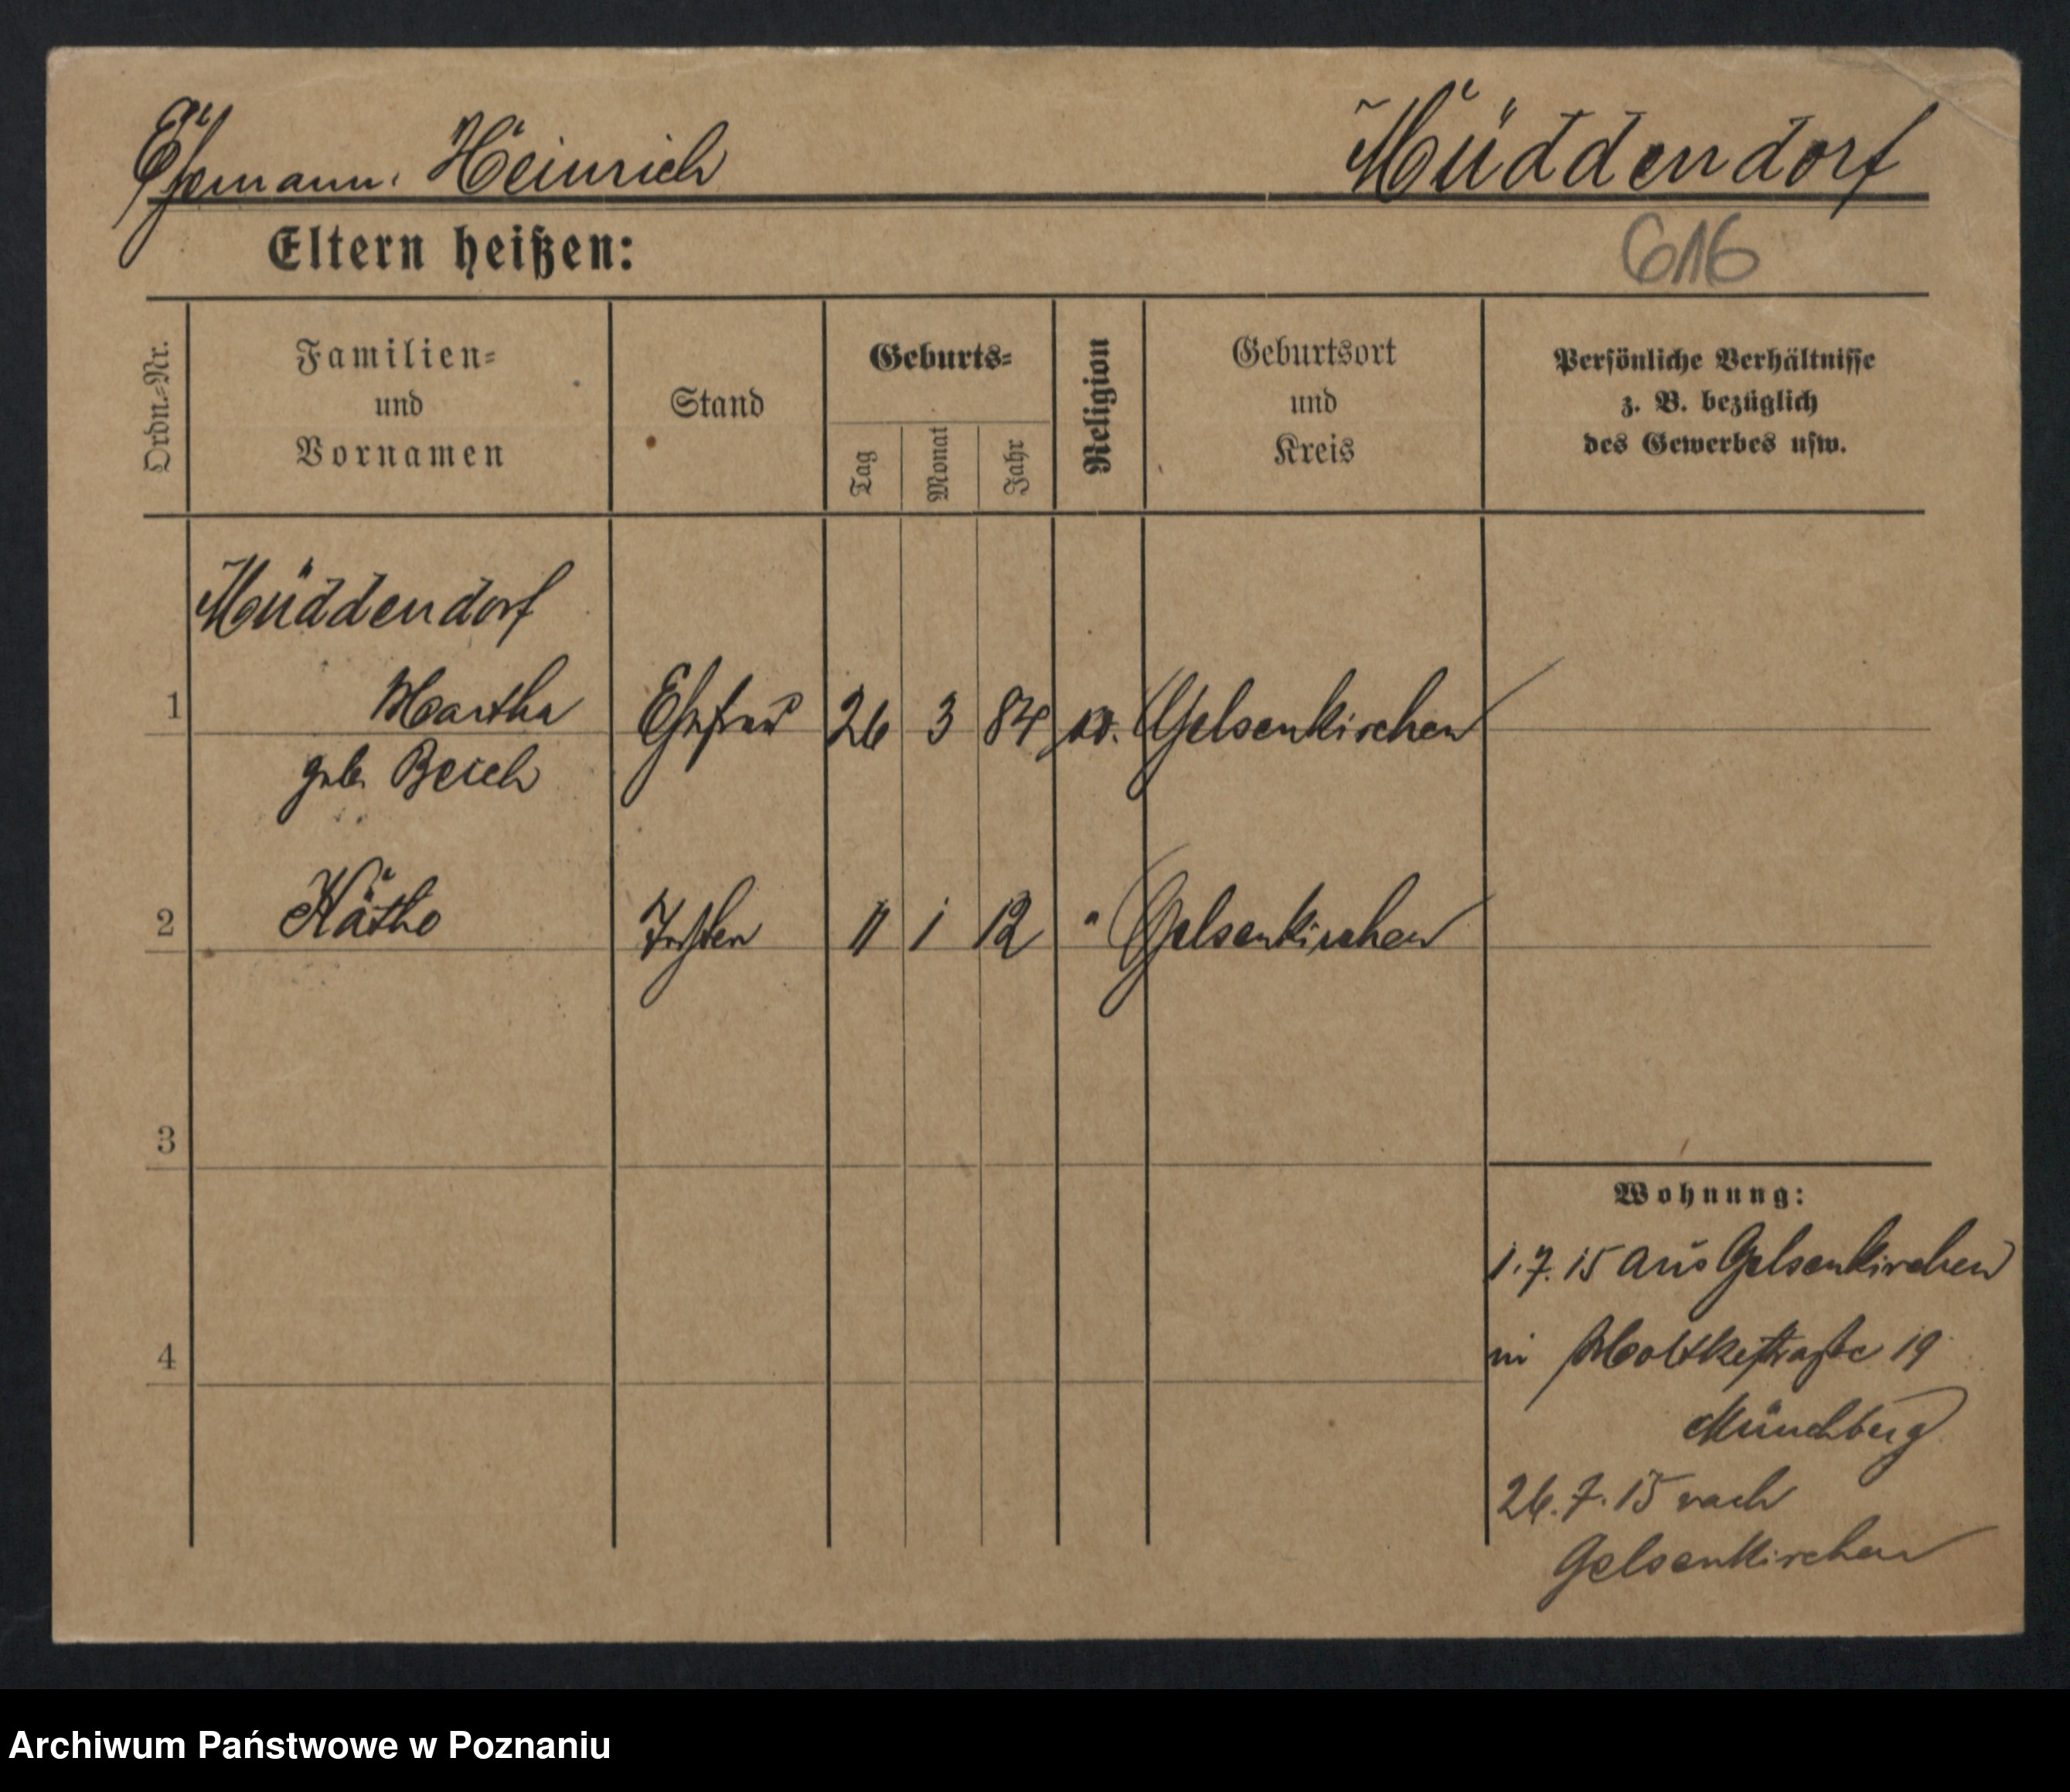 Ehemann: Heinrich Müddendorf
Eltern heißen:
616
Ordn.=Nr.
Familien=
und
Vornamen
Stand
Geburts=
Tag
Monat
Jahr
Religion
Geburtsort
und
Kreis
Persönliche Verhältnisse
z. B. bezüglich
des Gewerbes usw.
Müddendorf
1 Martha Ehefrau 26 3 84 ev. Gelsenkirchen
geb. Beich
2 Käthe Tochter 11 1 12 " Gelsenkirchen
3
Wohnung:
1.7.15 aus Gelsenkirchen
4 in Moltkestraße 19
Münchberg
26.7.15 nach
Gelsenkirchen
Archiwum Państwowe w Poznaniu